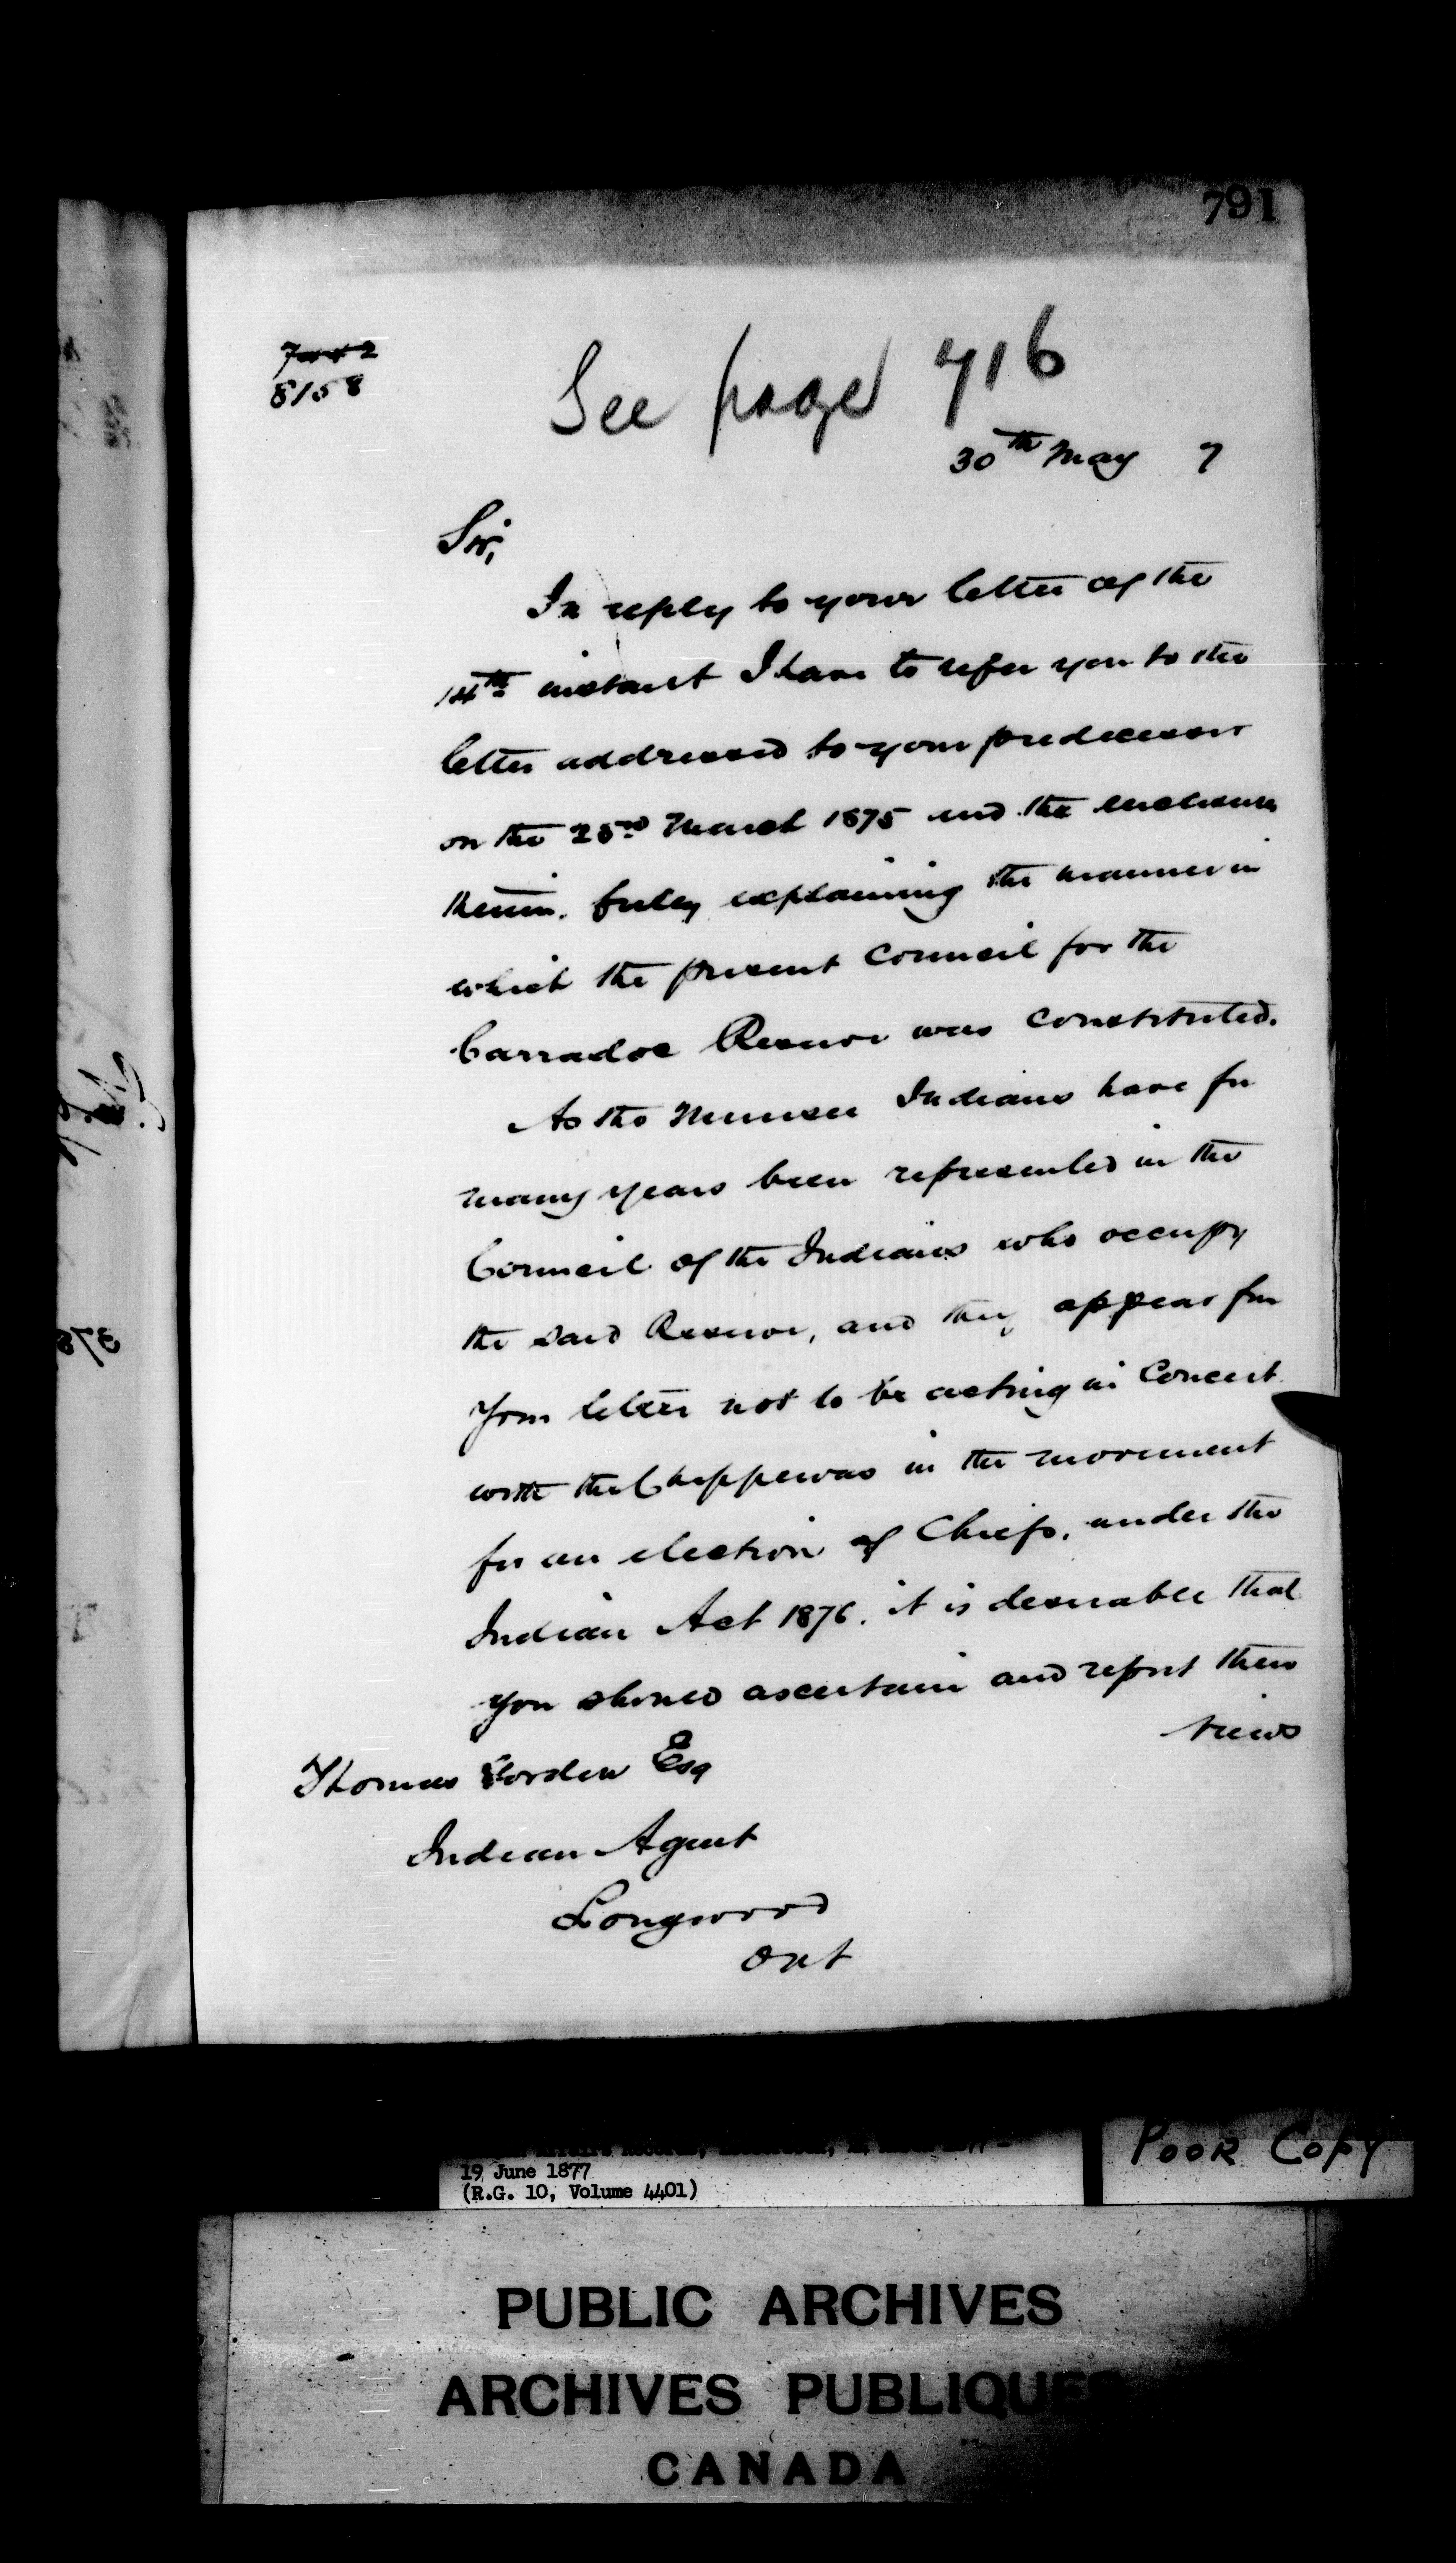 791
8158
See page 716
30th May 7
Sir,
In reply to your letter of the
14th instant I have to refer you to the
letter addressed to your predecessor
on the 23rd March 1875 and the enclosures
therein, fully explaining the manner in
which the present Council for the
Carradoc Reserve was constituted.
As the Munsee Indians have for
many years been represented in the
Council of the Indians who occupy
the said Reserve, and they appear from
your letter not to be acting in Concert
with the Chippewas in the movement
for an election of Chiefs, under the
Indian Act 1876, it is desirable that
you should ascertain and report their
views
Thomas Gordon Esq
Indian Agent
Longwood
Ont
19 June 1877
(R.G. 10, Volume 4401)
POOR COPY
PUBLIC ARCHIVES
ARCHIVES PUBLIQUES
CANADA